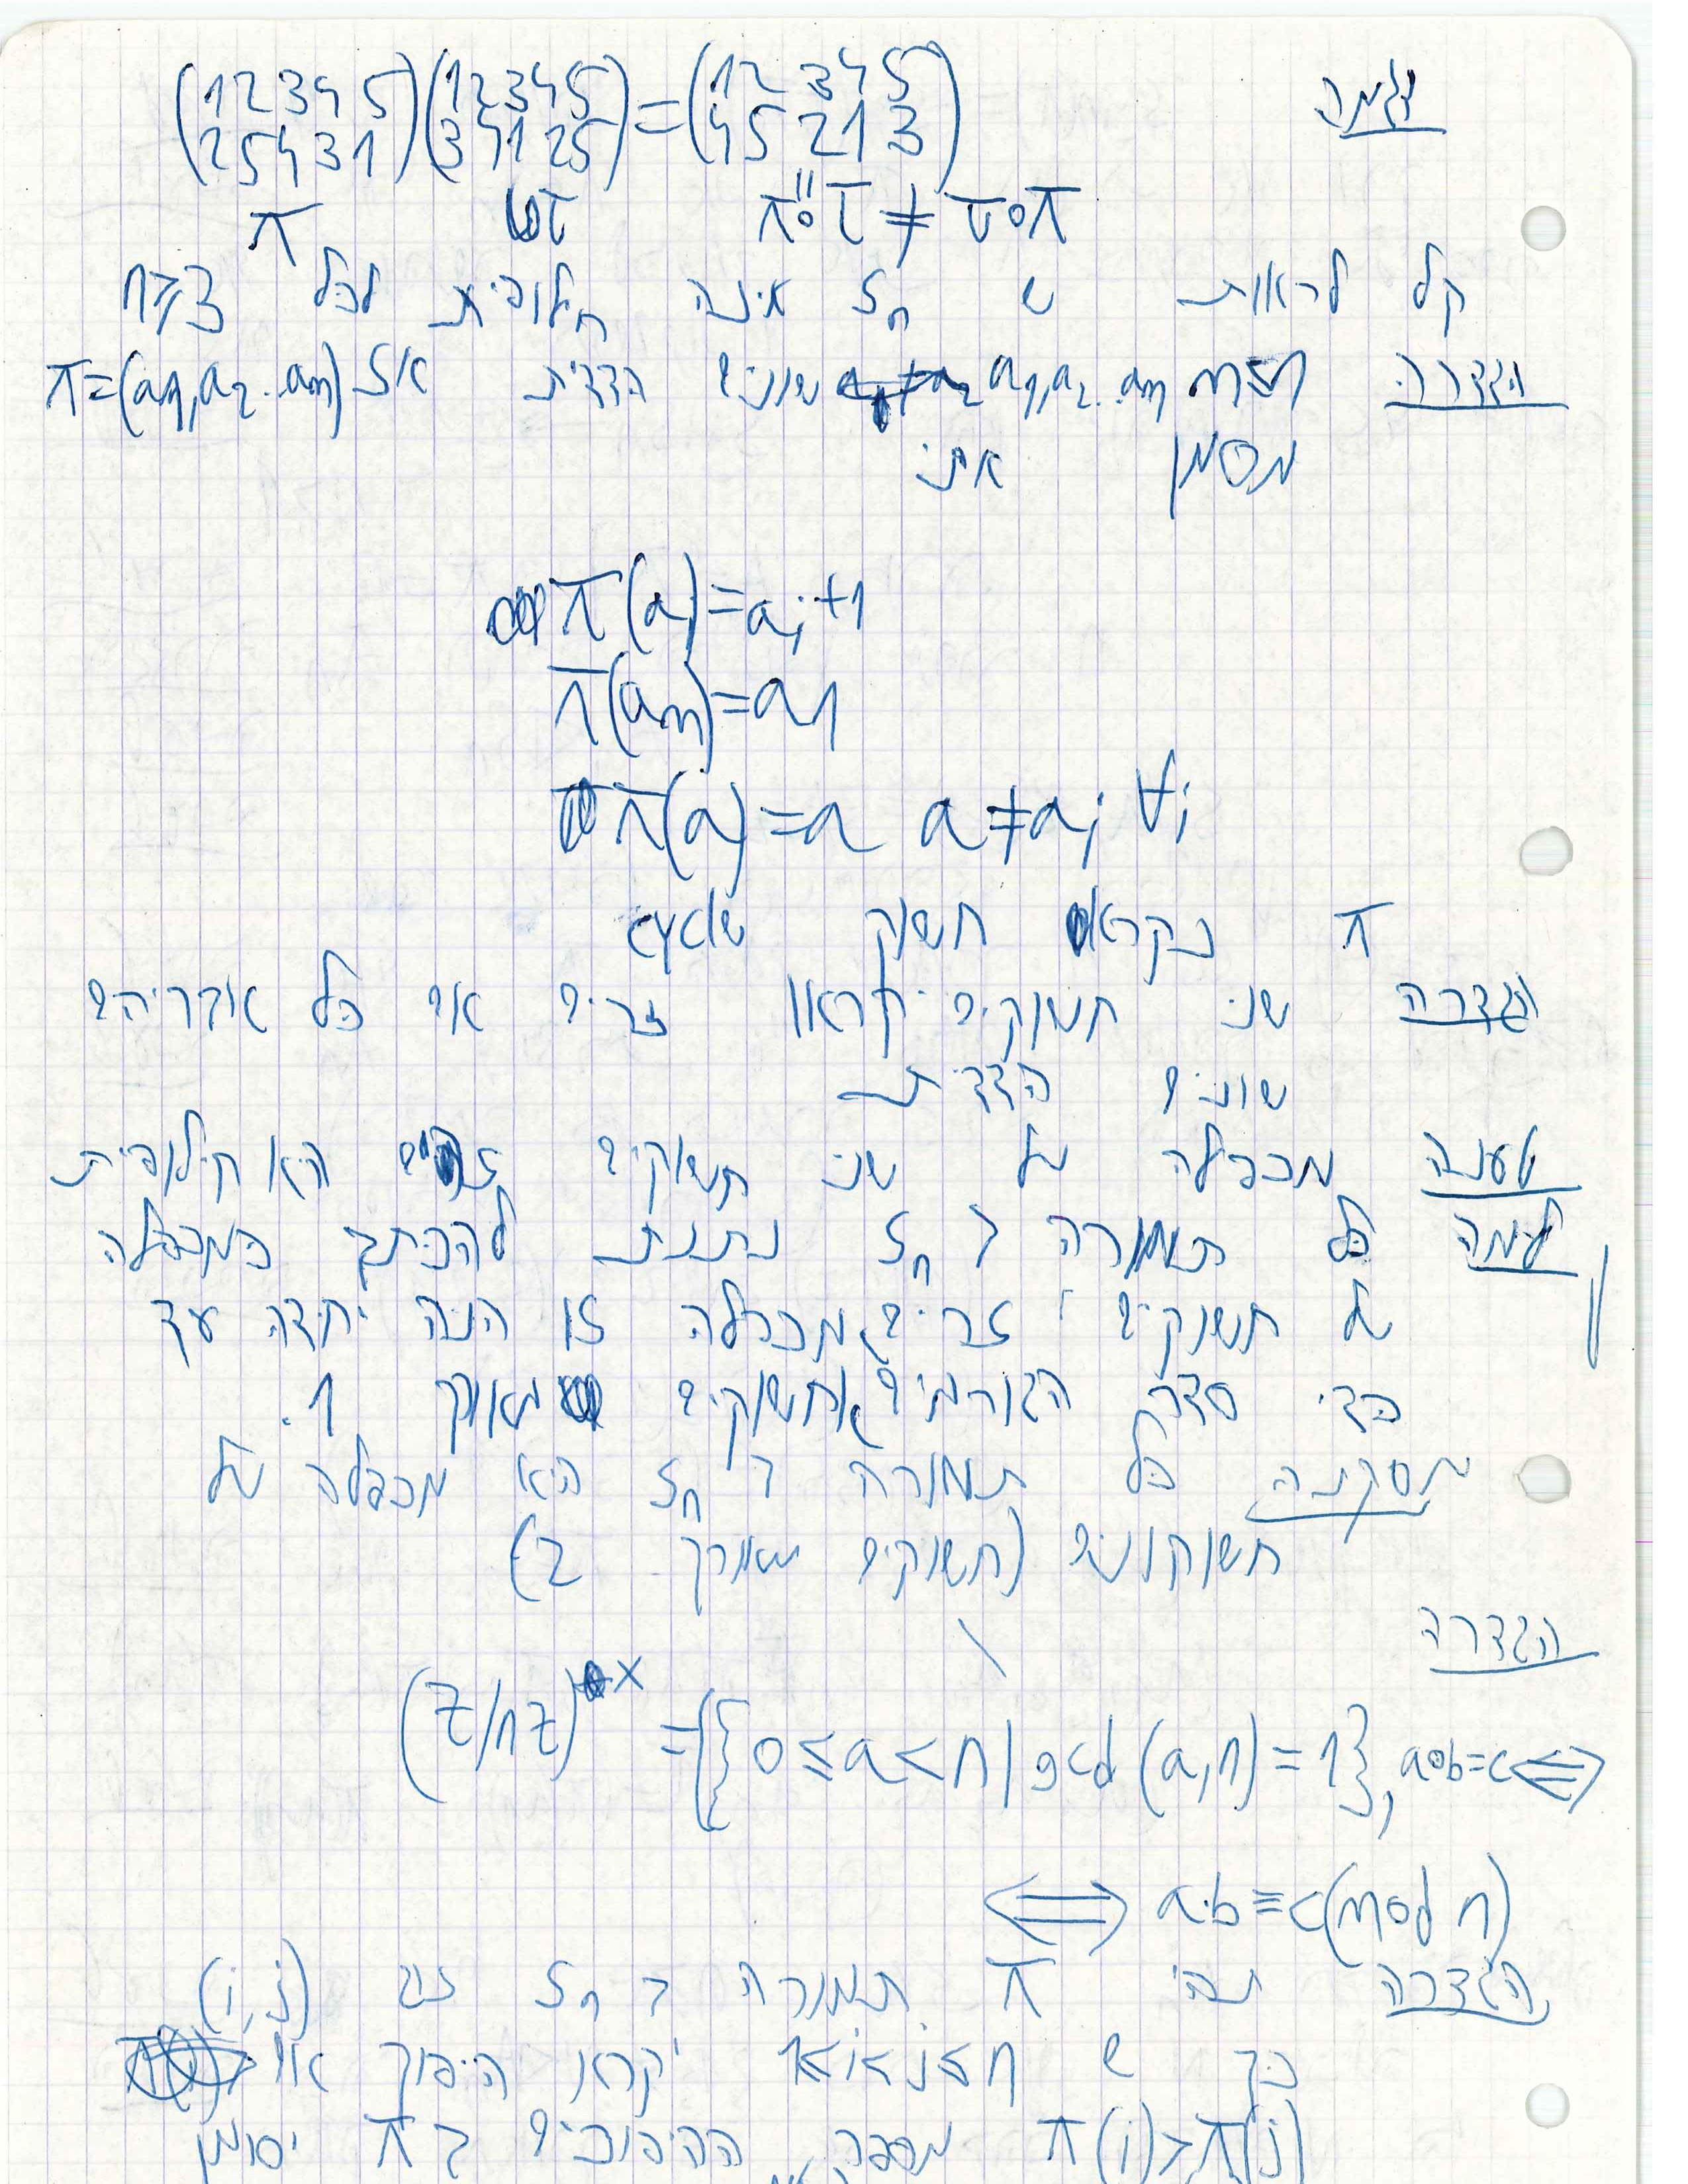 דוגמה (1 2 3 4 5 / 2 5 4 3 1)(1 2 3 4 5 / 3 4 1 2 5) = (1 2 3 4 5 / 4 5 2 1 3)
π τ π∘τ ≠ τ∘π
קל לראות ש Sn אינה חילופית לכל n≥3
הגדרה m≤n a1,a2..am שונים הדדית אז π=(a1,a2..am)
מסמן את
π(ai)=ai+1
π(am)=a1
π(a)=a a≠ai ∀i
π נקרא חשוק
הגדרה שני חשוקים יקראו זרים אם כל אבריהם
שונים הדדית
טענה מכפלה של שני חשוקים זרים היא חילופית
למה כל תמורה ב Sn ניתנת להכתב כמכפלה
של חשוקים זרים, מכפלה זו הינה יחידה עד
כדי סדר הגורמים וחשוקים מאורך 1.
מסקנה כל תמורה ב Sn היא מכפלה של
חשוקונים (חשוקים מאורך 2)
הגדרה
(Z/nZ)^x = ({0≤a<n|gcd(a,n)=1}, a∘b=c ⇔
⇔ a·b≡c(mod n)
הגדרה תהי π תמורה ב Sn זוג (i,j)
כך ש 1≤i<j≤n יקרא היפוך אם
π(i)>π(j) מספר ההיפוכים ב π יסומן